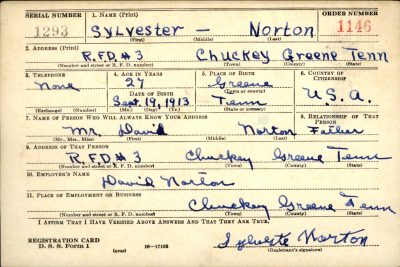 SERIAL NUMBER 1. NAME (Print) ORDER NUMBER
1293 SYLVESTER - Norton 1146
(First) (Middle) (Last)
2. ADDRESS (Print)
R.F.D # 3 Chuckey Greene Tenn
(Number and street or R. F. D. number) (Town) (County) (State)
3. TELEPHONE 4. AGE IN YEARS 5. PLACE OF BIRTH 6. COUNTRY OF CITIZENSHIP
None 27 Greene
DATE OF BIRTH (Town or county)
Sept. 19, 1913 Tenn U.S.A.
(Exchange) (Number) (Mo.) (Day) (Yr.) (State or country)
7. NAME OF PERSON WHO WILL ALWAYS KNOW YOUR ADDRESS 8. RELATIONSHIP OF THAT PERSON
Mr. David Norton Father
(Mr., Mrs., Miss) (First) (Middle) (Last)
9. ADDRESS OF THAT PERSON
R.F.D # 3 Chuckey Greene Tenn
(Number and street or R. F. D. number) (Town) (County) (State)
10. EMPLOYER'S NAME
David Norton
11. PLACE OF EMPLOYMENT OR BUSINESS
Chuckey Greene Tenn
(Number and street or R. F. D. number) (Town) (County) (State)
I AFFIRM THAT I HAVE VERIFIED ABOVE ANSWERS AND THAT THEY ARE TRUE.
REGISTRATION CARD
D. S. S. Form 1 (over) 16-17105 Sylveste Norton
(Registrant's signature)